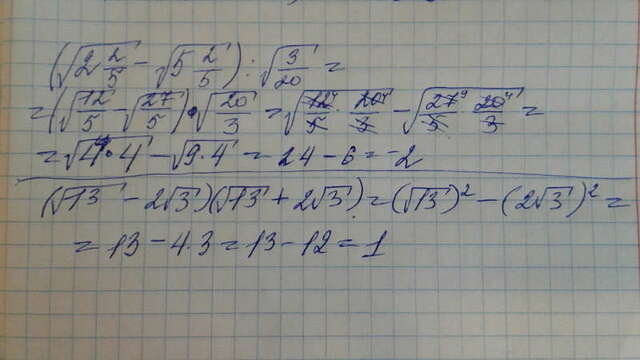 (√(2 2/5) - √(5 2/5)) : √(3/20) =
= (√(12/5) - √(27/5)) · √(20/3) = √(12/5 · 20/3) - √(27/5 · 20/3) =
= √(4·4) - √(9·4) = 4 - 6 = -2
(√13 - 2√3)(√13 + 2√3) = (√13)² - (2√3)² =
= 13 - 4·3 = 13 - 12 = 1